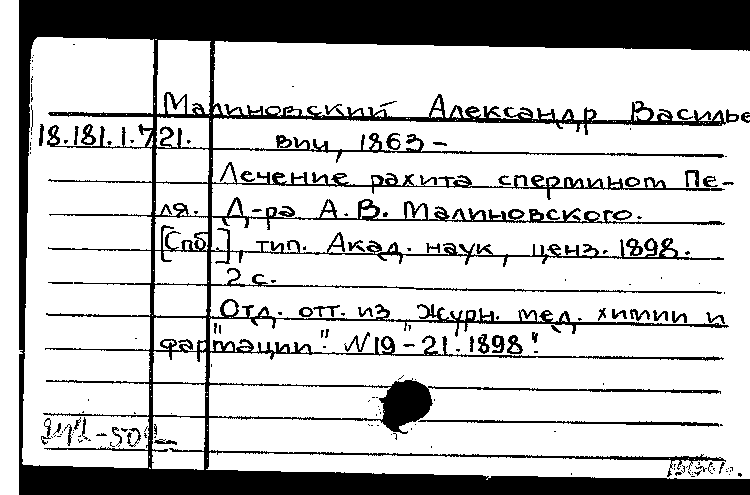 Малиновский Александр Василье
18.181.1.721. вич, 1863 –
Лечение рахита спермином Пе-
ля. Д-ра А. В. Малиновского.
[Спб.], тип. Акад. наук, ценз. 1898.
2 с.
Отд. отт. из "Журн. мед. химии и
фармации". N 19-21. 1898".